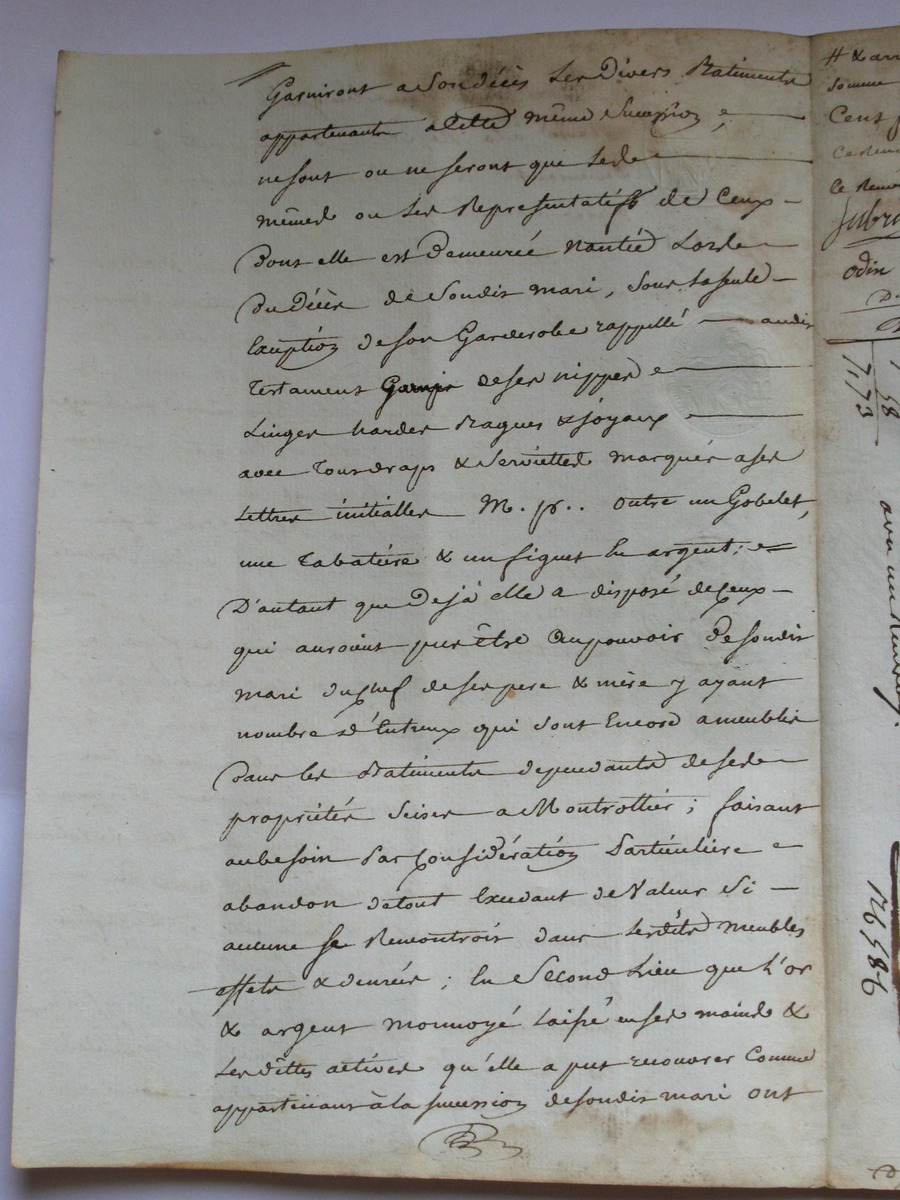 Garniront a Son décès Les Divers Batiments
appartenants a Cette même Succession,
ne sont ou ne seront que Les
mêmes ou Les Representatifs de Ceux
Dont elle est Demeurée Nantie Lors
Du Décès de Soudit mari, Sous La seule
Exception de son Garderobe rappellé audit
Testament Garnie de ses nippes
Linges hardes Bagues & joyaux
avec Tous draps & Serviettes marqués a ses
Lettres initialles M. p.. outre un Gobelet,
une Tabatière & un En argent;
D'autant que Déjà elle a disposé de Ceux
qui auroient pu être Au pouvoir De Soudit
mari du Chef de ses pere & mère y ayant
nombre d'Entreux qui sont Encore a meubler
Dans les Batiments dependants de ses
propriétés Scises a Montrottier; faisant
au besoin Par Considération Particulière
abandon de tout Excedant de Valeur Si
aucune se Rencontroit dans Lesdits meubles
effets & denrées; En Second Lieu que L'or
& argent monnoyé Laissé en ses mains &
Les Dettes actives qu'elle a pu recouvrer Comme
appartenant à la succession de Soudit mari ont
somme
Cent
Ce
odin
7173
58
avec un
176586